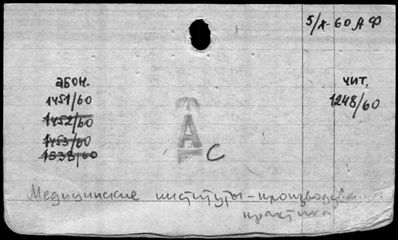 5/X-60 А Ф
абон. чит.
1451/60 1248/60
1452/60
1453/60
1538/60
А с
Медицинские институты - производствен.
практика